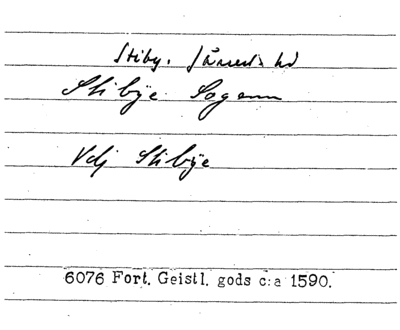 Stiby. Järrest. hd
Stibÿe Sogenn
Vdj Stibÿe
6076 Fort. Geistl. gods c:a 1590.